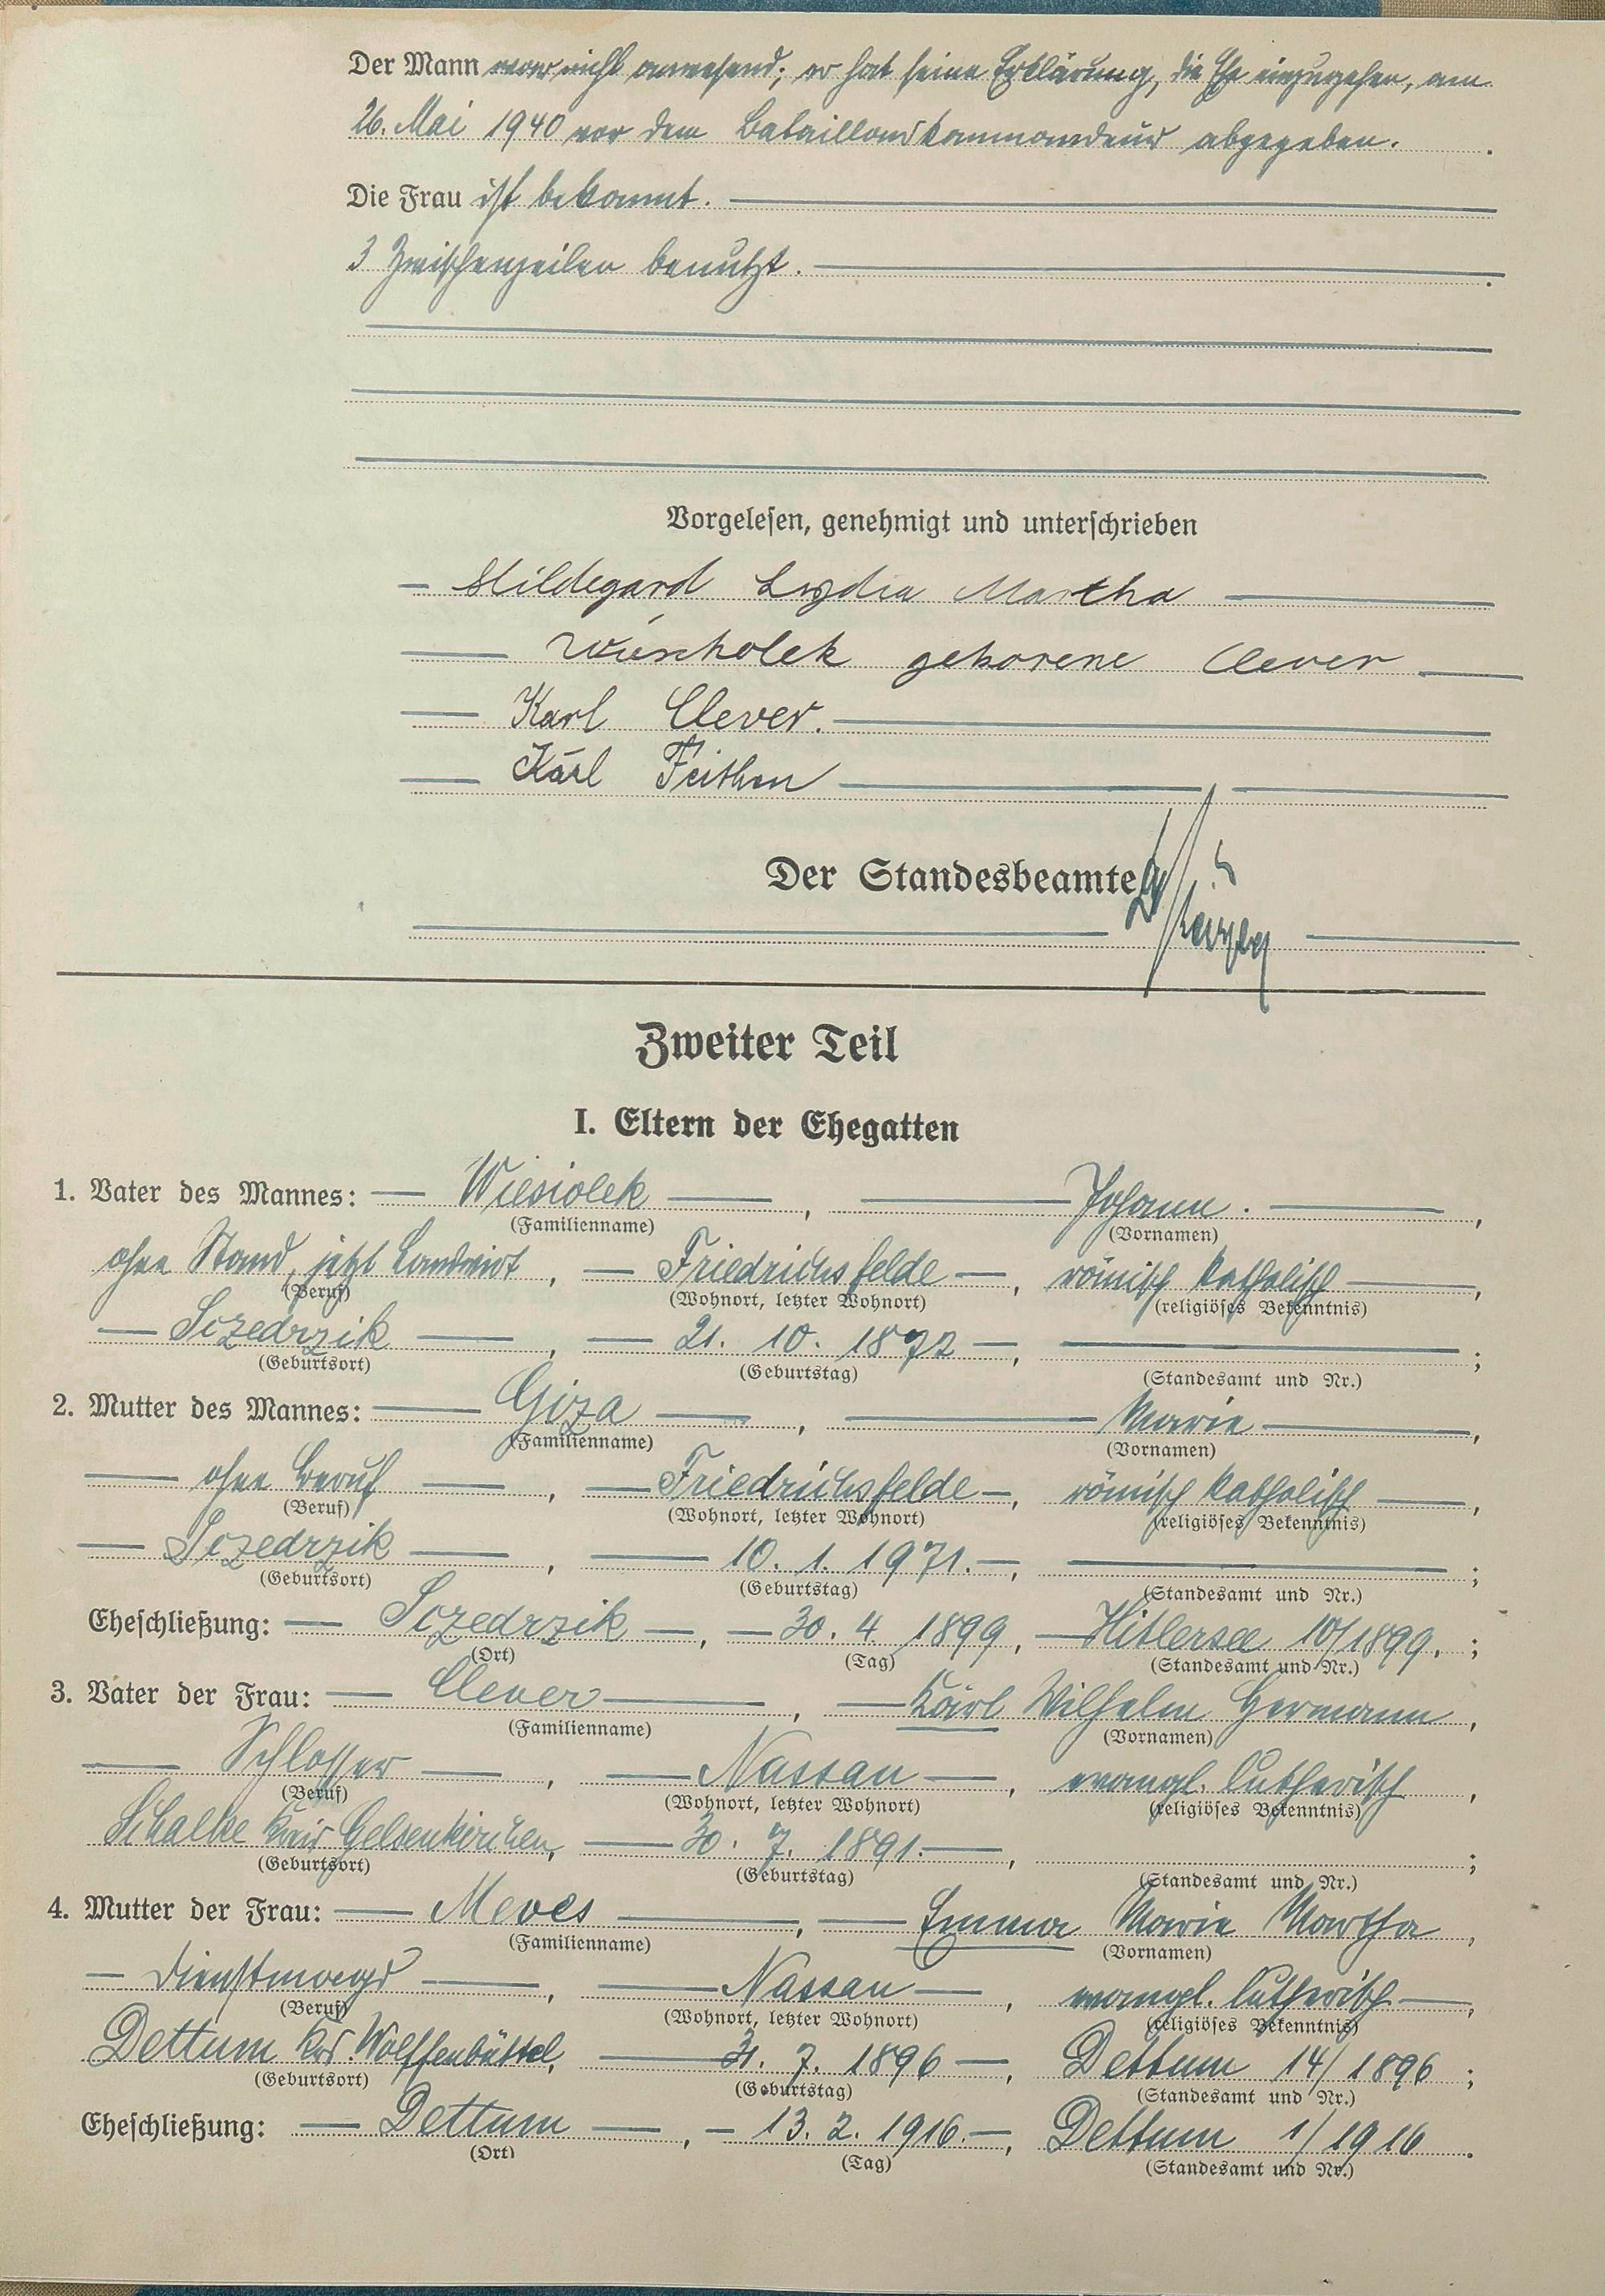 Der Mann war nicht anwesend; er hat seine Erklärung, die Ehe einzugehen, am
26. Mai 1940 vor dem Bataillonskommandeur abgegeben.
Die Frau ist bekannt.
3 Zwischenzeilen benutzt.
Vorgelesen, genehmigt und unterschrieben
Hildegard Lydia Martha
geborene Clever
Karl Clever.
Karl Feithen
Der Standesbeamte
Zweiter Teil
I. Eltern der Ehegatten
1. Vater des Mannes: Wiesiolek, Johann.,
(Familienname) (Vornamen)
ohne Stand, jetzt Landwirt, Friedrichsfelde, römisch katholisch,
(Beruf) (Wohnort, letzter Wohnort) (religiöses Bekenntnis)
Sczedrzik, 21. 10. 1872, ;
(Geburtsort) (Geburtstag) (Standesamt und Nr.)
2. Mutter des Mannes: Giza, Marie,
(Familienname) (Vornamen)
ohne Beruf, Friedrichsfelde, römisch katholisch,
(Beruf) (Wohnort, letzter Wohnort) (religiöses Bekenntnis)
Sczedrzik, 10. 1. 1971., ;
(Geburtsort) (Geburtstag) (Standesamt und Nr.)
Eheschließung: Sczedrzik, 30. 4. 1899, Hitlersee 10/1899. ;
(Ort) (Tag) (Standesamt und Nr.)
3. Vater der Frau: Clever, Karl Wilhelm Hermann,
(Familienname) (Vornamen)
Schlosser, Nassau, evangl. lutherisch,
(Beruf) (Wohnort, letzter Wohnort) (religiöses Bekenntnis)
Schalke Kreis Gelsenkirchen, 30. 7. 1891., ;
(Geburtsort) (Geburtstag) (Standesamt und Nr.)
4. Mutter der Frau: Meves, Emma Marie Martha,
(Familienname) (Vornamen)
Dienstmagd, Nassau, evangl. lutherisch,
(Beruf) (Wohnort, letzter Wohnort) (religiöses Bekenntnis)
Dettum Krs. Wolffenbüttel, 31. 7. 1896, Dettum 14/1896;
(Geburtsort) (Geburtstag) (Standesamt und Nr.)
Eheschließung: Dettum, 13. 2. 1916., Dettum 1/1916.
(Ort) (Tag) (Standesamt und Nr.)